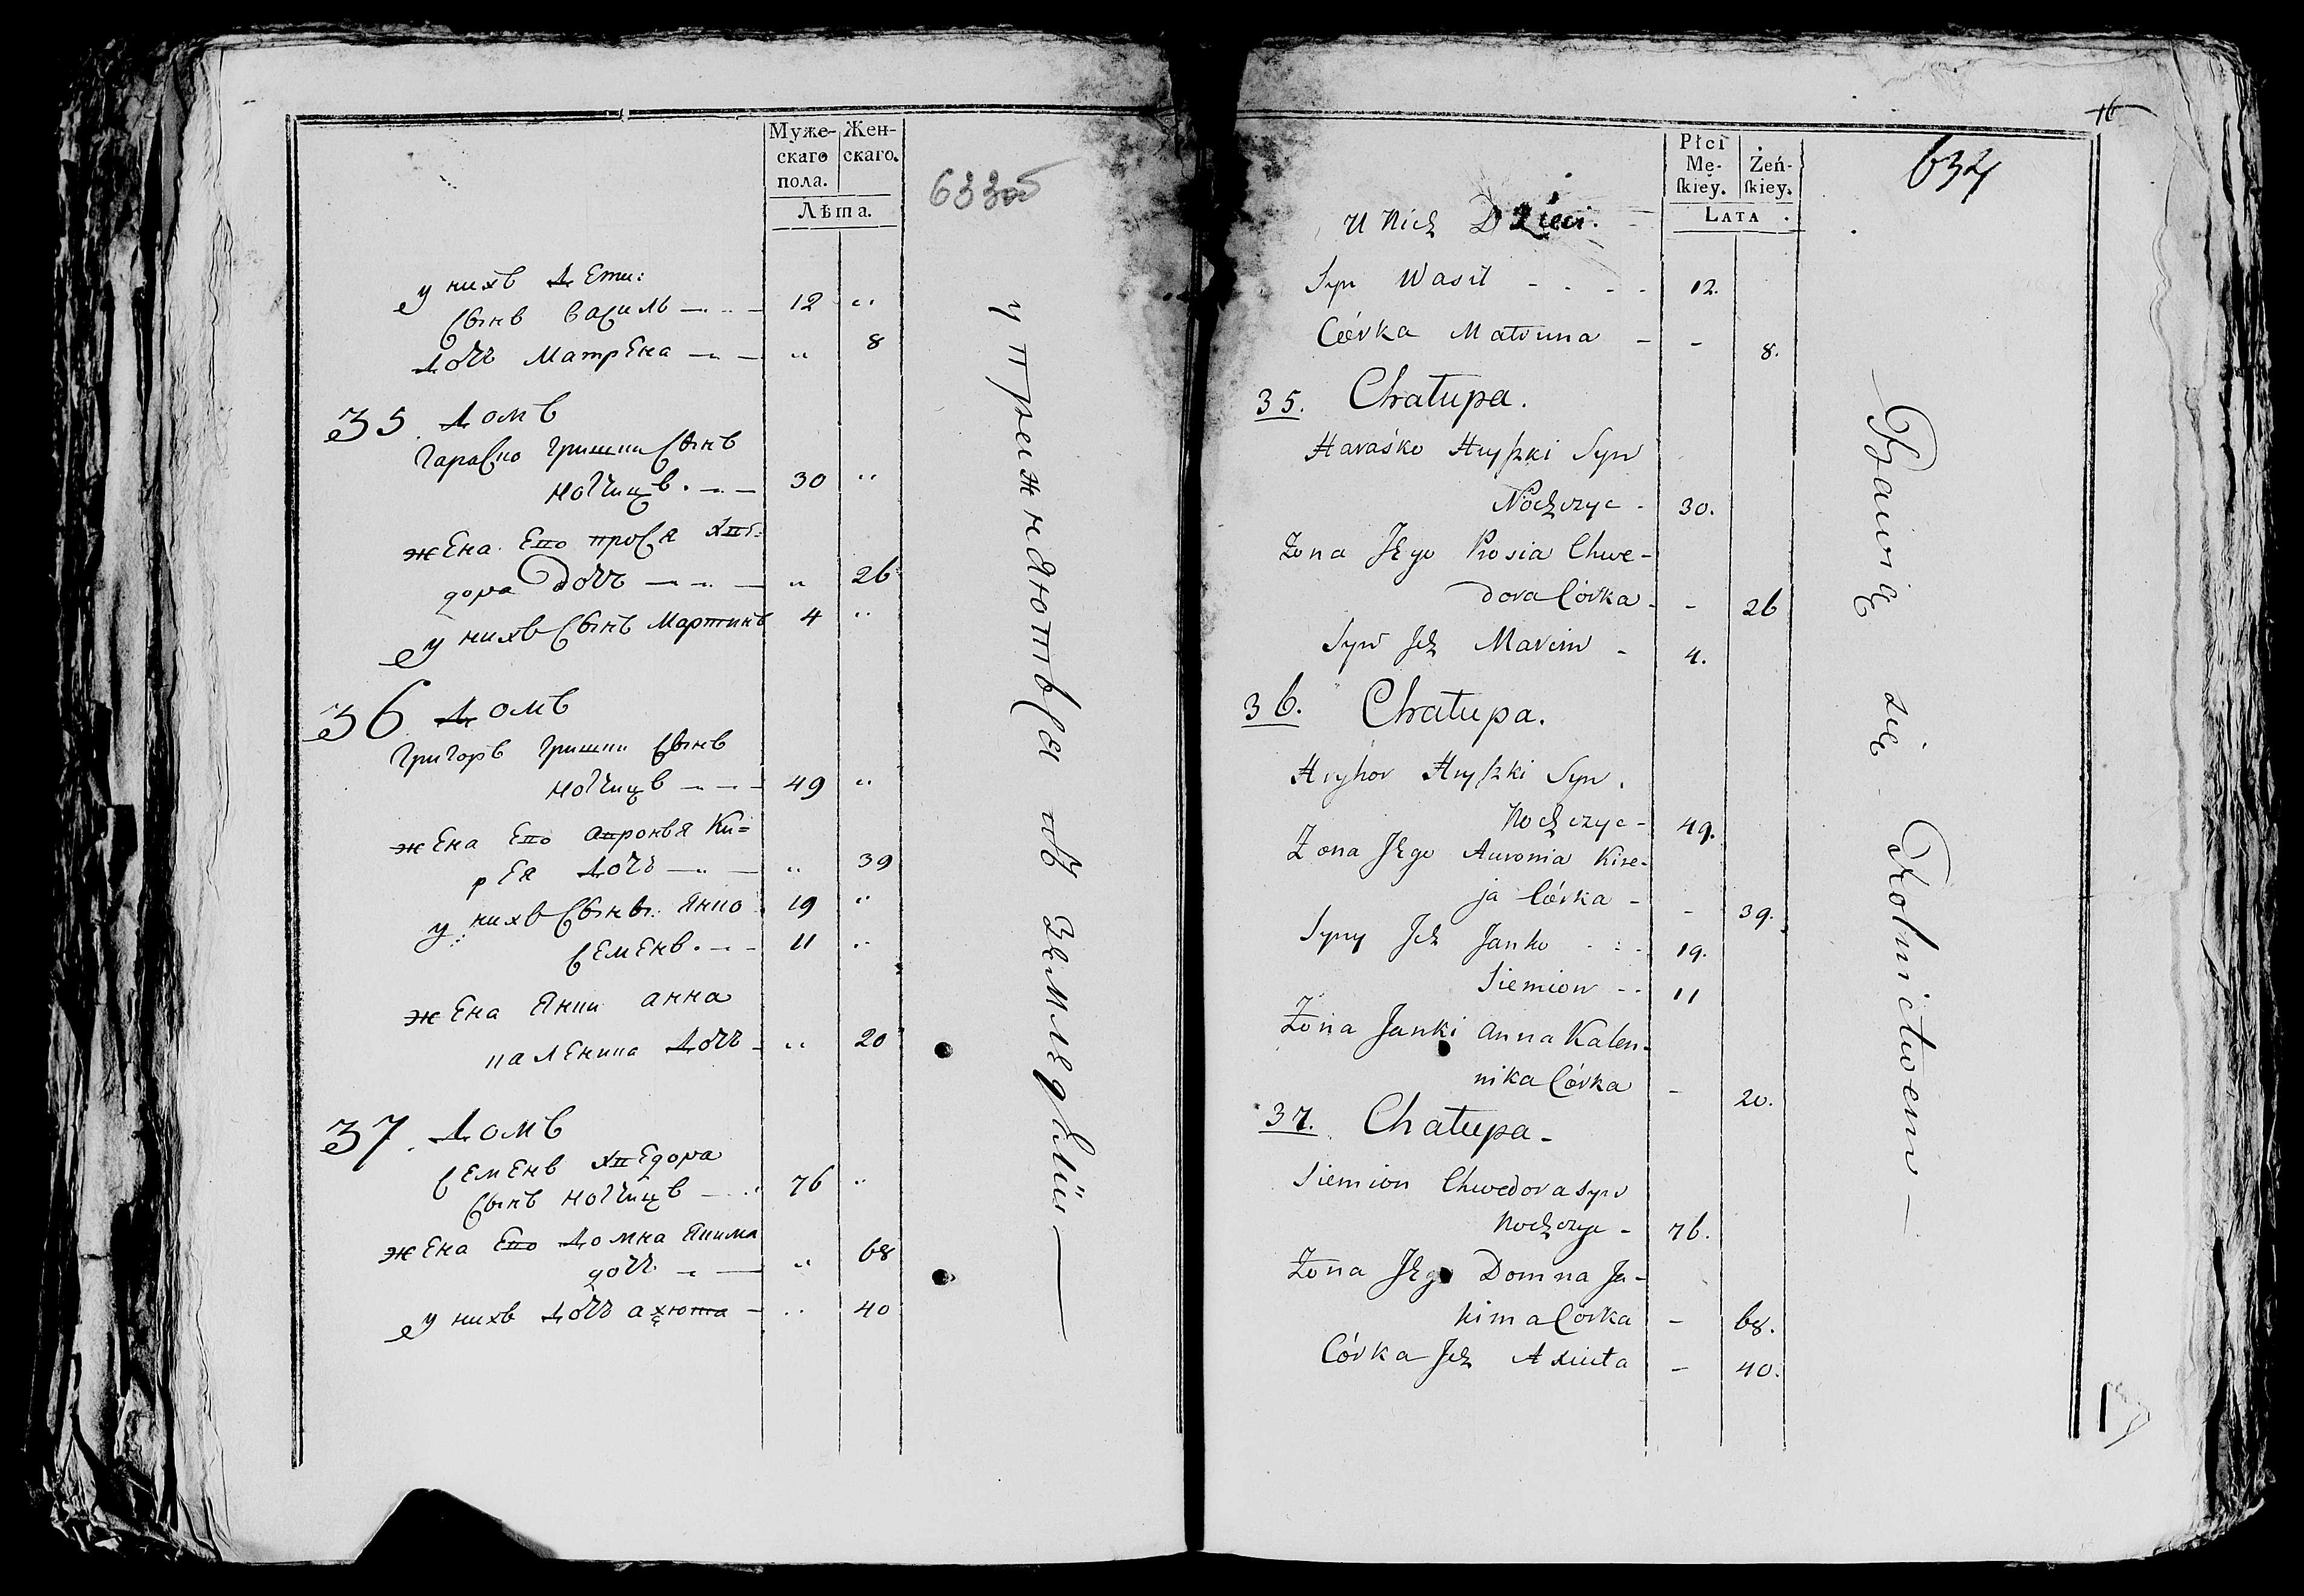 Муже-
скаго
пола.
Жен-
скаго.
Лѣта.
633об
у нихъ Дети:
Сынъ Василь 12 "
Дочь Матрена " 8
35. Домъ
Гараско Гришки Сынъ
Ночицъ. 30 "
жена Его Прося Хве=
дора Дочь " 26
у нихъ Сынъ Мартинъ 4 "
36 Домъ
Григоръ Гришки Сынъ
Ночицъ 49 "
жена Его Апронья Ки=
рея Дочь " 39
у нихъ Сыны: Янко 19 "
Семенъ. 11 "
жена Янки Анна
каленика Дочь " 20
37. Домъ
Семенъ Хведора
Сынъ Ночицъ 76 "
жена Его Домна Якима
дочь " 68
у нихъ Дочь Ахюта " 40
упрежняютъся въ Земледелии
Płci
Mę-
ſkiey.
Żeń-
ſkiey.
Lata
16
634
U Nich Dzieci.
Syn Wasil 12.
Córka Matruna - 8.
35. Chałupa.
Haraśko Hryſzki Syn
Nochczyc - 30.
Żona Jego Prosia Chwe-
dora Córka - - 26
Syn Jch Marcin - 4.
36. Chałupa.
Hryhor Hryſzki Syn.
Nochczyc - 49.
Żona Jego Auronia Kire-
ja Córka - - 39.
Syny Jch Janko 19.
Siemion - - 11
Żona Janki Anna Kalen-
nika Córka - 20.
37. Chałupa -
Siemion Chwedora Syn
Nochczyc - 76.
Żona Jego Domna Ja-
kima Córka - 68.
Córka Jch Axiuta - 40.
Bawią się Rolnictwem